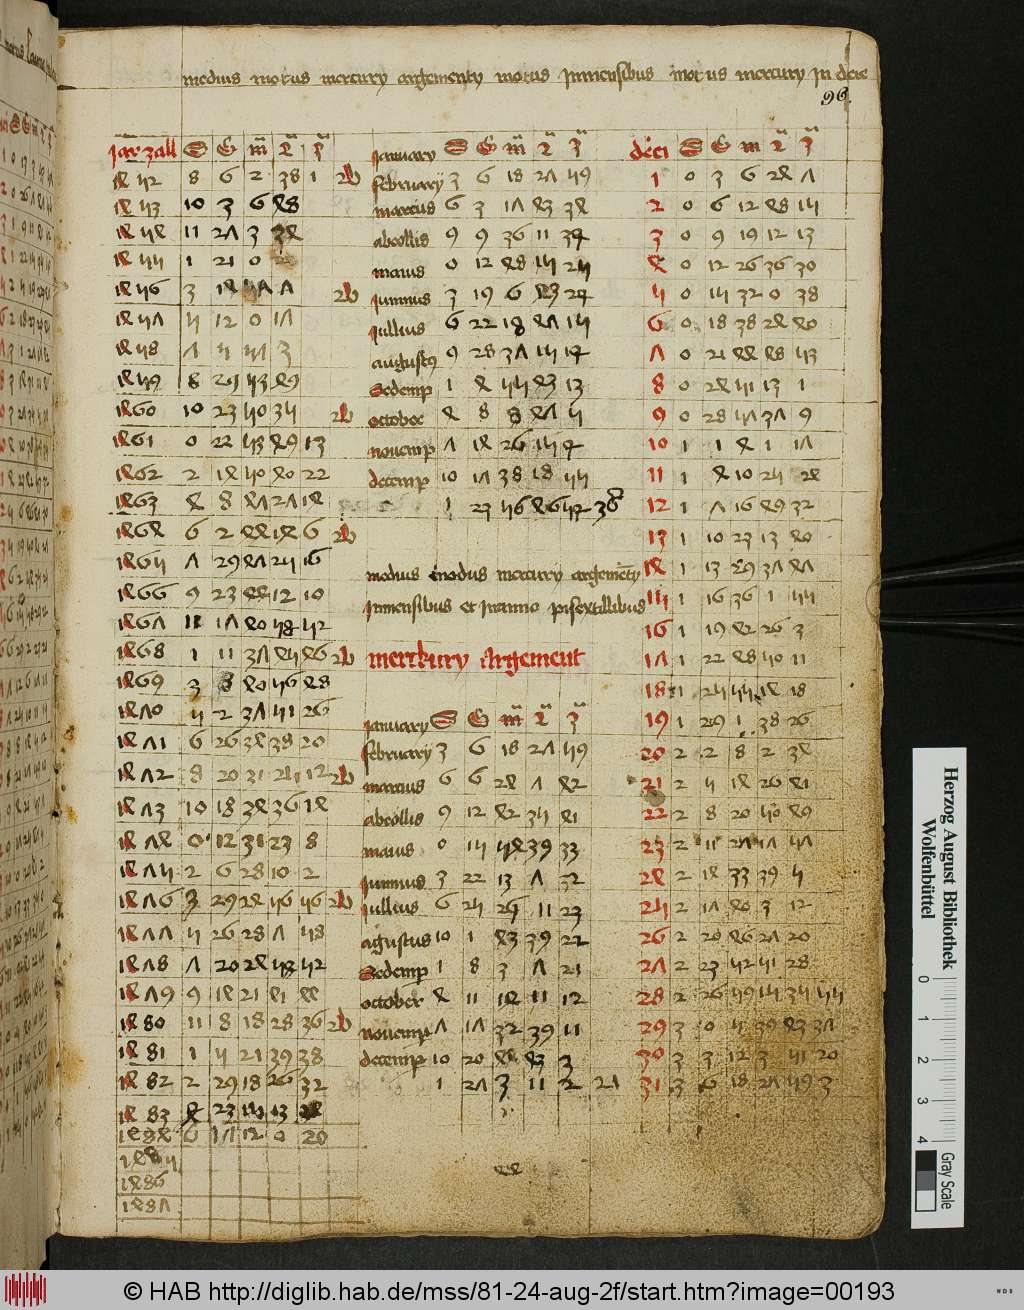 medius motus mercury argementy motus Inmensibus motus mercury In deie
96
Jar zall S G m 2 3
1452 8 6 2 38 1 2b
1453 10 3 6 48
1454 11 27 3 34
1455 1 21 0
1456 3 14 57 7 2b
1457 5 12 0 17
1458 7 5 57 3
1459 8 29 53 49
1460 10 23 50 35 2b
1461 0 22 53 49 13
1462 2 14 50 40 22
1463 4 8 47 27 14
1464 6 2 44 14 6 2b
1465 7 29 47 25 16
1466 9 23 44 12 10
1467 11 17 40 58 52
1468 1 11 37 45 46 2b
1469 3 8 40 56 48
1470 5 2 37 51 26
1471 6 26 34 38 20
1472 8 20 31 25 12 2b
1473 10 18 34 36 14
1474 0 12 31 23 8
1475 2 6 28 10 2
1476 3 29 24 56 56 2b
1477 5 26 28 7 58
1478 7 20 24 53 52
1479 9 14 21 41 44
1480 11 8 18 28 36 2b
1481 1 5 21 39 38
1482 2 29 18 26 32
1483 4 23 15 13
1484 6 17 12 0 20
1485
1486
1487
January S G m 2 3
february 3 6 18 27 59
marcius 6 3 17 43 34
abrollis 9 9 36 11 34
maius 0 12 48 15 25
Junnius 3 19 6 43 24
Jullius 6 22 18 47 15
augustus 9 28 37 15 14
Sedemp 1 4 55 43 13
october 4 8 8 47 5
novemp 7 14 26 15 4
decemp 10 17 38 18 55
1 23 56 46 52 38
medius modus mercury argementy
Inmensibus et Inanno pisextillibus
merckury Argement
January S G m 2 3
february 3 6 18 27 59
marcius 6 6 24 7 42
abrollis 9 12 42 35 41
maius 0 15 54 39 33
Junnius 3 22 13 7 32
Jullius 6 25 25 11 23
agustus 10 1 43 39 22
Sedemp 1 8 3 7 21
october 4 11 14 11 12
novemp 7 17 32 39 11
decemp 10 20 44 43 3
1 27 3 11 2 27
44
deci S G m 2 3
1 0 3 6 24 7
2 0 6 12 48 15
3 0 9 19 12 13
4 0 12 26 36 30
5 0 15 32 0 38
6 0 18 38 24 40
7 0 21 44 48 53
8 0 24 51 13 1
9 0 28 57 37 9
10 1 1 4 1 17
11 1 4 10 25 24
12 1 7 16 49 32
13 1 10 23 13 40
14 1 13 29 37 47
15 1 16 36 1 55
16 1 19 42 26 3
17 1 22 48 50 11
18 1 25 55 14 18
19 1 29 1 38 26
20 2 2 8 2 34
21 2 5 14 26 41
22 2 8 20 50 49
23 2 11 27 17 57
24 2 14 33 39 5
25 2 17 40 3 12
26 2 20 46 27 20
27 2 23 52 51 28
28 2 26 59 15 35 55
29 3 0 5 39 43 37
30 3 3 12 3 51 20
31 3 6 18 27 59 3
Herzog August Bibliothek
Wolfenbüttel
0 1 2 3 4
Gray Scale
© HAB http://diglib.hab.de/mss/81-24-aug-2f/start.htm?image=00193